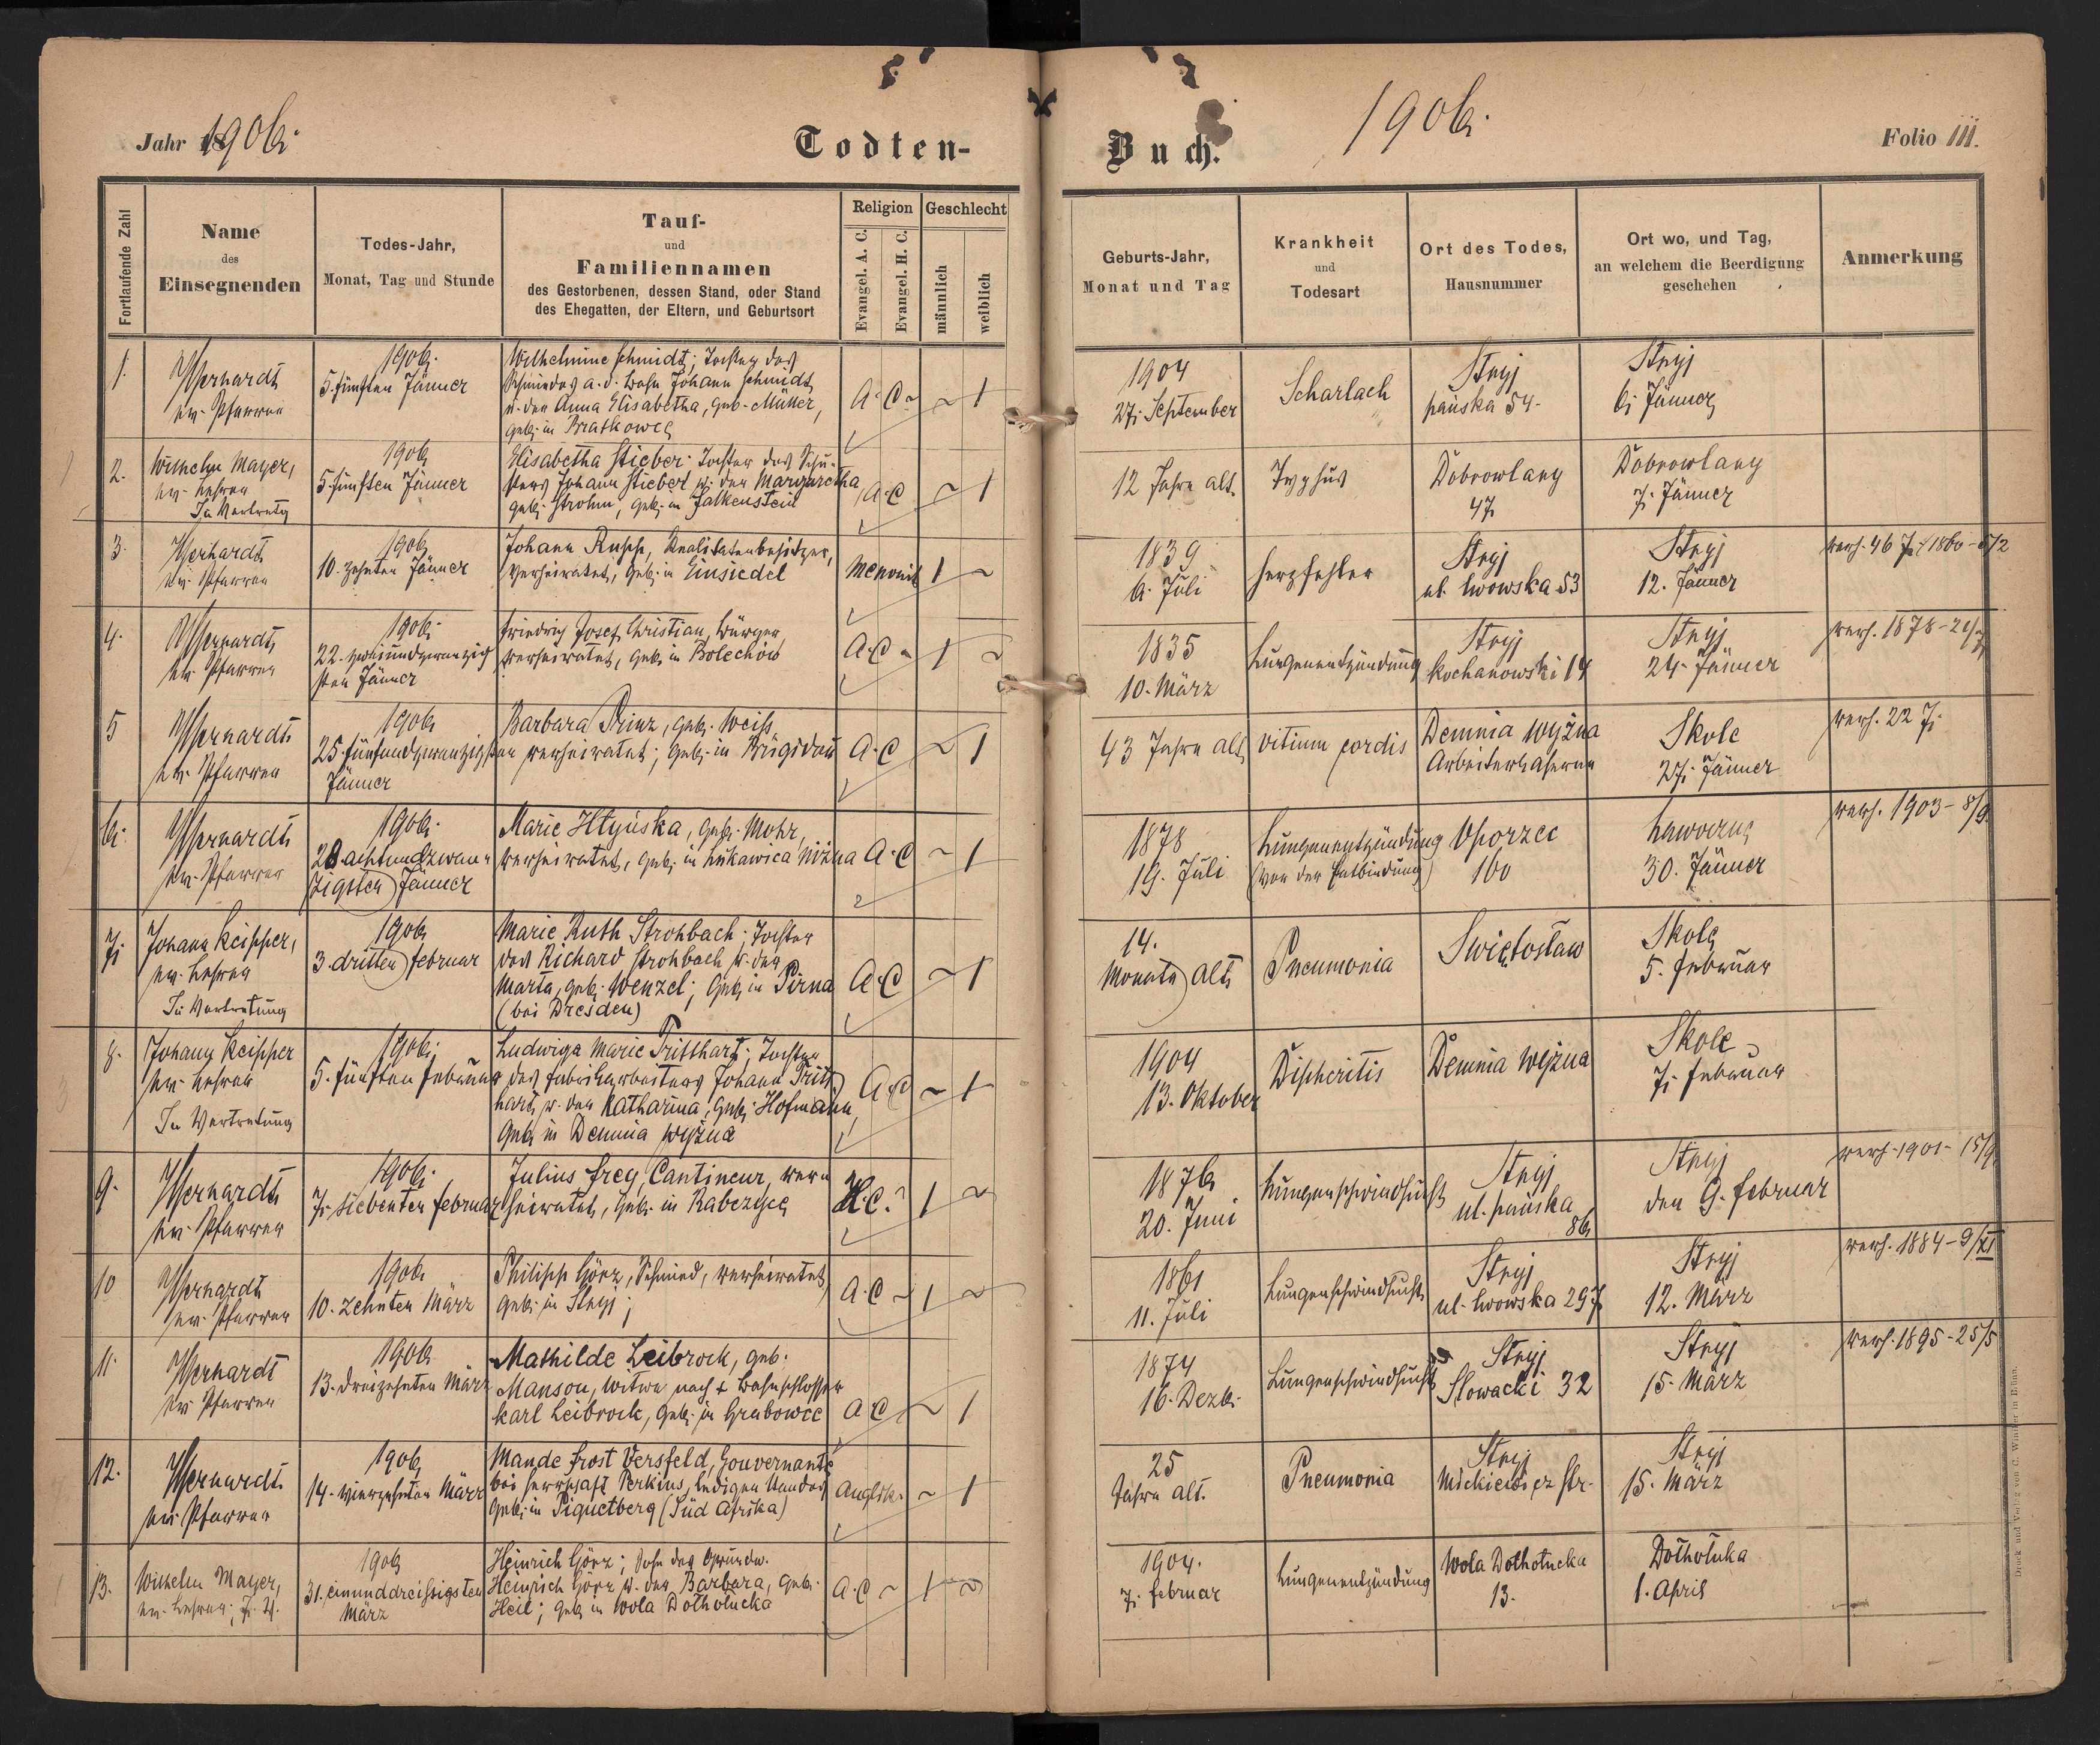 Jahr 1906.
Todten-
Buch.
1906.
Folio III.
Fortlaufende Zahl
Name
des
Einsegnenden
Todes-Jahr,
Monat, Tag und Stunde
Tauf-
und
Familiennamen
des Gestorbenen, dessen Stand, oder Stand
des Ehegatten, der Eltern, und Geburtsort
Religion
Evangel. A. C.
Evangel. H. C.
Geschlecht
männlich
weiblich
Geburts-Jahr,
Monat und Tag
Krankheit
und
Todesart
Ort des Todes,
Hausnummer
Ort wo, und Tag,
an welchem die Beerdigung
geschehen
Anmerkung
1.
ev. Pfarrer
1906.
5. fünften Jänner
Wilhelmine Schmidt; Tochter des
Schmiedes a. d. Bahn Johann Schmidt
u. der Anna Elisabetha, geb. Müller,
geb. in Bratkowce
A. C. ~ 1
1904
27. September
Scharlach
Stryj
pańska 54.
Stryj
6. Jänner
2.
Wilhelm Mayer,
ev. Lehrer
In Vertretg
1906
5. fünften Jänner
Elisabetha Stieber; Tochter des
Johann Stieber u. der Margaretha
geb. Strohm, geb. in Falkenstein
A. C ~ 1
12 Jahre alt.
Typhus
Dobrowlany
47.
Dobrowlany
7. Jänner
3.
ev. Pfarrer
1906
10. zehnten Jänner
Johann Rupp, Realitätenbesitzer,
verheiratet, geb. in Einsiedel
Menonit 1 ~
1839
6. Juli
Herzfehler
Stryj
ul. lwowska 53
Stryj
12. Jänner
verh. 46 J.
4.
ev. Pfarrer
1906.
22. zweiundzwanzig
sten Jänner
Friedrich Josef Christian, Bürger,
verheiratet, geb. in Bolechów
A. C. 1 ~
1835
10. März
Lungenentzündung
Stryj
Kochanowski 14
Stryj
24. Jänner
verh. 1878
5
ev. Pfarrer
1906
25. fünfundzwanzigsten
Jänner
Barbara Prinz, geb. Weiss
verheiratet; geb. in Brigidau
A. C ~ 1
43 Jahre alt
vitium cordis
Demnia wyżna
Arbeiterkaserne
Skole
27. Jänner
verh. 22 J.
6.
ev. Pfarrer
1906.
28 achtundzwan-
zigsten Jänner
Marie geb. Mohr,
verheiratet, geb. in Lukawica niżna
A. C ~ 1
1878
19. Juli
Lungenentzündung
(vor der Entbindung)
Oporzec
160
Ławoczne
30. Jänner
verh. 1903 - 8/9.
7.
Johann Keipper,
ev. Lehrer
In Vertretung
1906
3. dritten Februar
Marie Ruth Strohbach; Tochter
des Richard Strohbach u. der
Marta, geb. Wenzel; geb. in Pirna
(bei Dresden)
A. C ~ 1
14.
Monate alt
Pneumonia
Swiętosław
Skole
5. Februar
8.
Johann Keipper
ev. Lehrer
In Vertretung
1906.
5. fünften Februar
Ludwiga Marie Tritthart; Tochter
des Fabriksarbeiters Johann Tritt-
hart u. der Katharina, geb. Hofmann,
geb. in Demnia wyżna
A. C ~ 1
1904
13. Oktober
Diphteritis
Demnia wyżna
Skole
7. Februar
9.
ev. Pfarrer
1906.
7. siebenten Februar
Julius Frey, Cantineur, ver-
heiratet, geb. in Rabczyce
H. C. 1 ~
1876
20. Juni
Lungenschwindsucht
Stryj
ul. pańska
86
Stryj
den 9. Februar
verh. 1901 - 15/9.
10
ev. Pfarrer
1906
10. zehnten März
Philipp Görz, Schmied, verheiratet,
geb. in Stryj;
A. C ~ 1 ~
1861
11. Juli
Lungenschwindsucht
Stryj
ul. lwowska 297
Stryj
12. März
verh. 1884 - 9/XI
11.
ev. Pfarrer
1906
13. dreizehnten März
Mathilde Leibrock, geb.
Manson, Witwe nach + Bahnschlosser
Karl Leibrock, geb. in Grabowce
A C ~ 1
1874
16. Dezb.
Lungenschwindsucht
Stryj
Slowacki 32
Stryj
15. März
verh. 1895 - 25/5
12.
ev. Pfarrer
1906
14. vierzehnten März
Maude Frost Versfeld, Gouvernante
bei Herrschaft Perkins, ledigen Standes
geb. in Piquetberg (Süd Afrika)
Anglik. ~ 1
25
Jahre alt.
Pneumonia
Stryj
Mickiewicz Str.
Stryj
15. März
13.
Wilhelm Mayer,
ev. Lehrer; J. V.
1906
31. einunddreissigsten
März
Heinrich Görz; Sohn des Grundw.
Heinrich Görz u. der Barbara, geb.
Heil; geb. in Wola Dołhołucka
A. C ~ 1 ~
1904.
7. Februar
Lungenentzündung
Wola Dołhołucka
13.
Dołhołuka
1. April
Druck und Verlag von C. Winiker in Brünn.